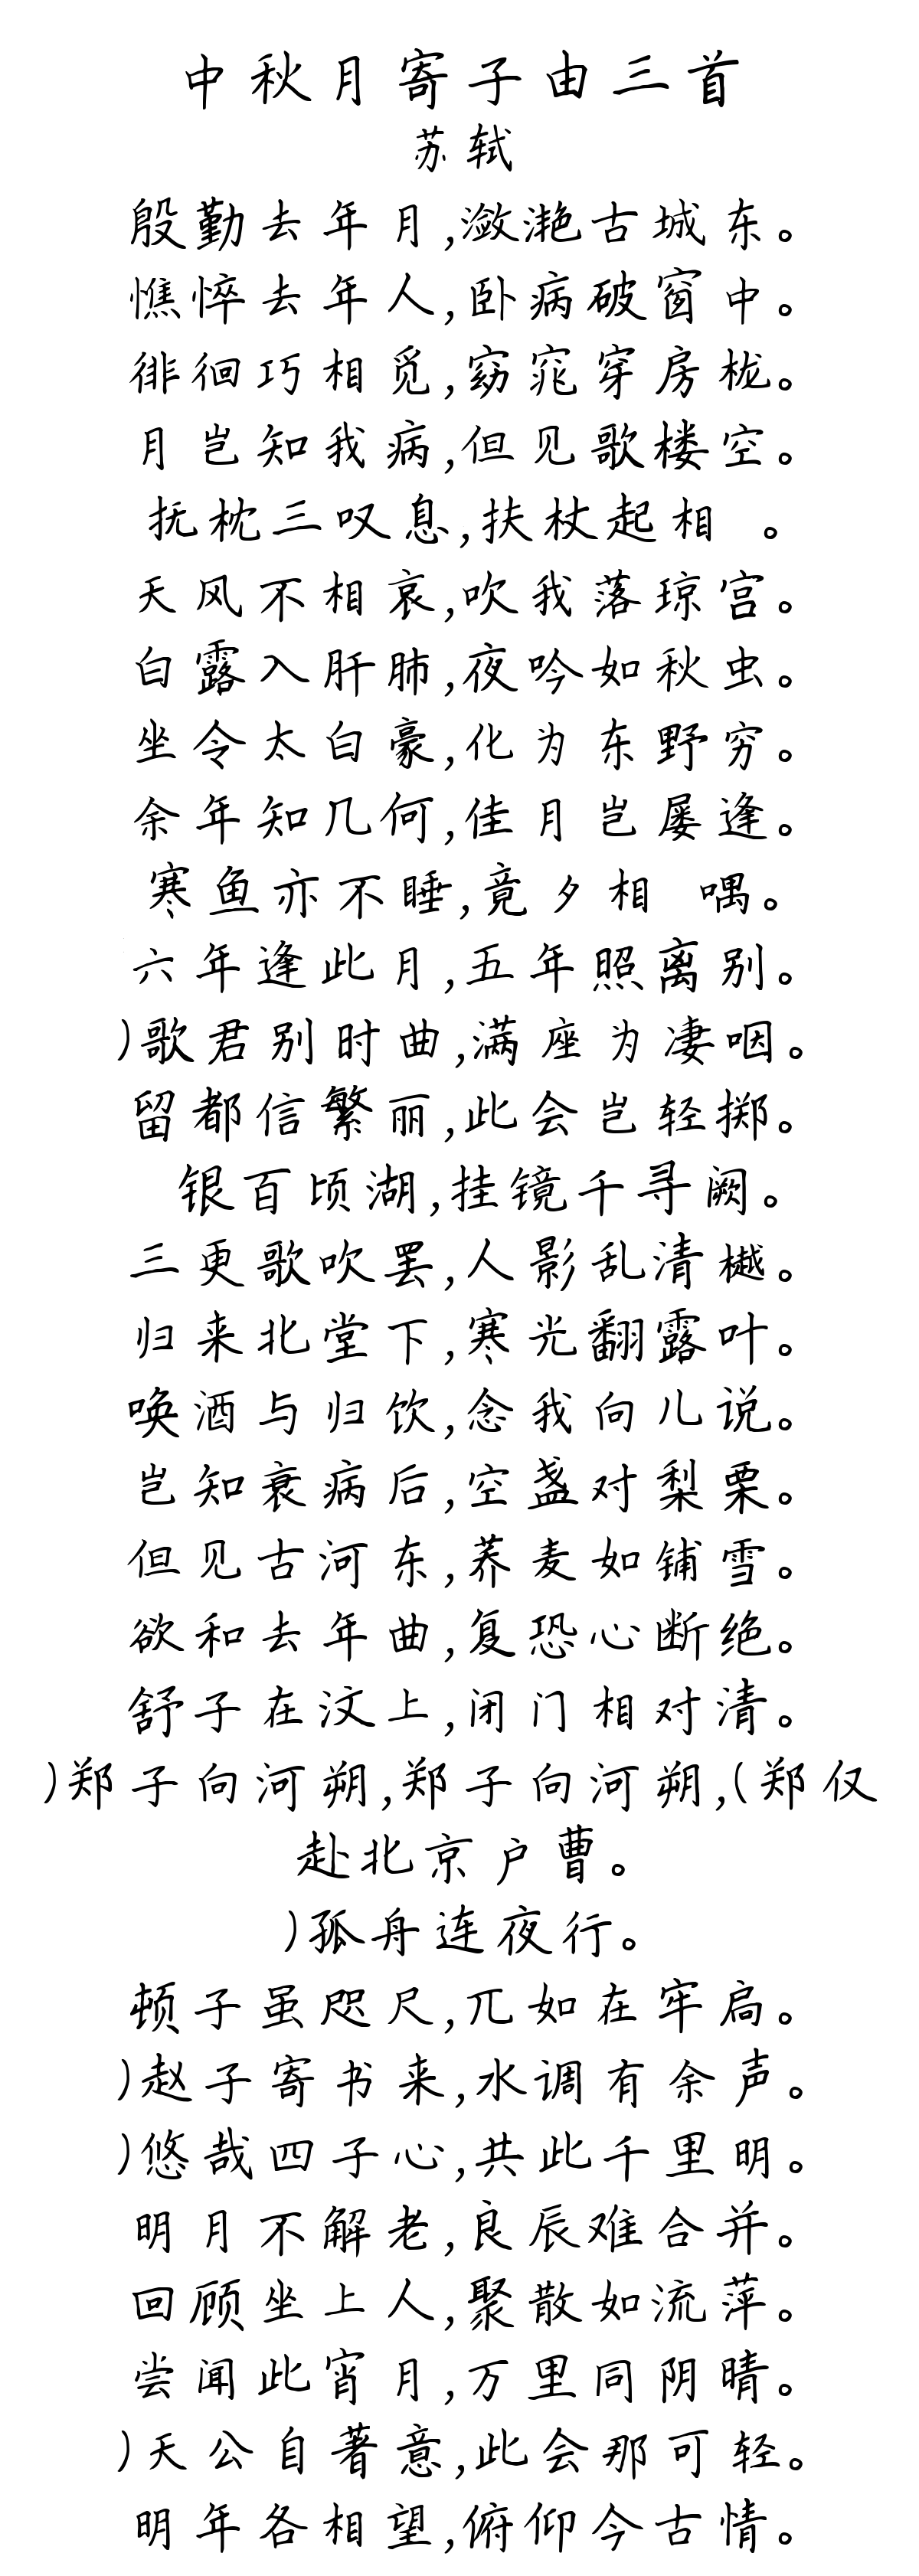 中秋月寄子由三首
苏轼
殷勤去年月,潋滟古城东。
憔悴去年人,卧病破窗中。
徘徊巧相觅,窈窕穿房栊。
月岂知我病,但见歌楼空。
抚枕三叹息,扶杖起相 。
天风不相哀,吹我落琼宫。
白露入肝肺,夜吟如秋虫。
坐令太白豪,化为东野穷。
余年知几何,佳月岂屡逢。
寒鱼亦不睡,竟夕相 喁。
六年逢此月,五年照离别。
)歌君别时曲,满座为凄咽。
留都信繁丽,此会岂轻掷。
银百顷湖,挂镜千寻阙。
三更歌吹罢,人影乱清樾。
归来北堂下,寒光翻露叶。
唤酒与归饮,念我向儿说。
岂知衰病后,空盏对梨栗。
但见古河东,荞麦如铺雪。
欲和去年曲,复恐心断绝。
舒子在汶上,闭门相对清。
)郑子向河朔,郑子向河朔,(郑仅
赴北京户曹。
)孤舟连夜行。
顿子虽咫尺,兀如在牢扃。
)赵子寄书来,水调有余声。
)悠哉四子心,共此千里明。
明月不解老,良辰难合并。
回顾坐上人,聚散如流萍。
尝闻此宵月,万里同阴晴。
)天公自著意,此会那可轻。
明年各相望,俯仰今古情。